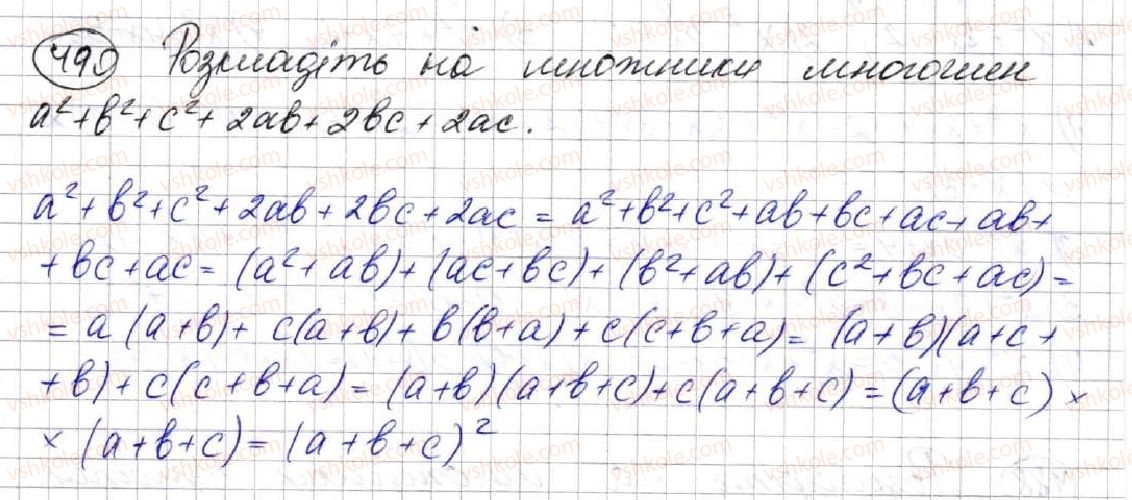 490 Розкладіть на множники многочлен
a²+b²+c²+2ab+2bc+2ac.
a²+b²+c²+2ab+2bc+2ac = a²+b²+c²+ab+bc+ac+ab+
+bc+ac= (a²+ab)+(ac+bc)+(b²+ab)+(c²+bc+ac)=
= a(a+b)+ c(a+b)+b(b+a)+c(c+b+a)= (a+b)(a+c+
+b)+c(c+b+a)= (a+b)(a+b+c)+c(a+b+c)=(a+b+c)×
×(a+b+c)= (a+b+c)²